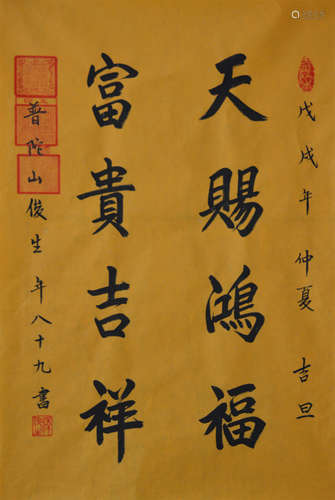 戊戌年 仲夏 吉旦
天賜鴻福
富貴吉祥
普陀山俊生 年八十九書